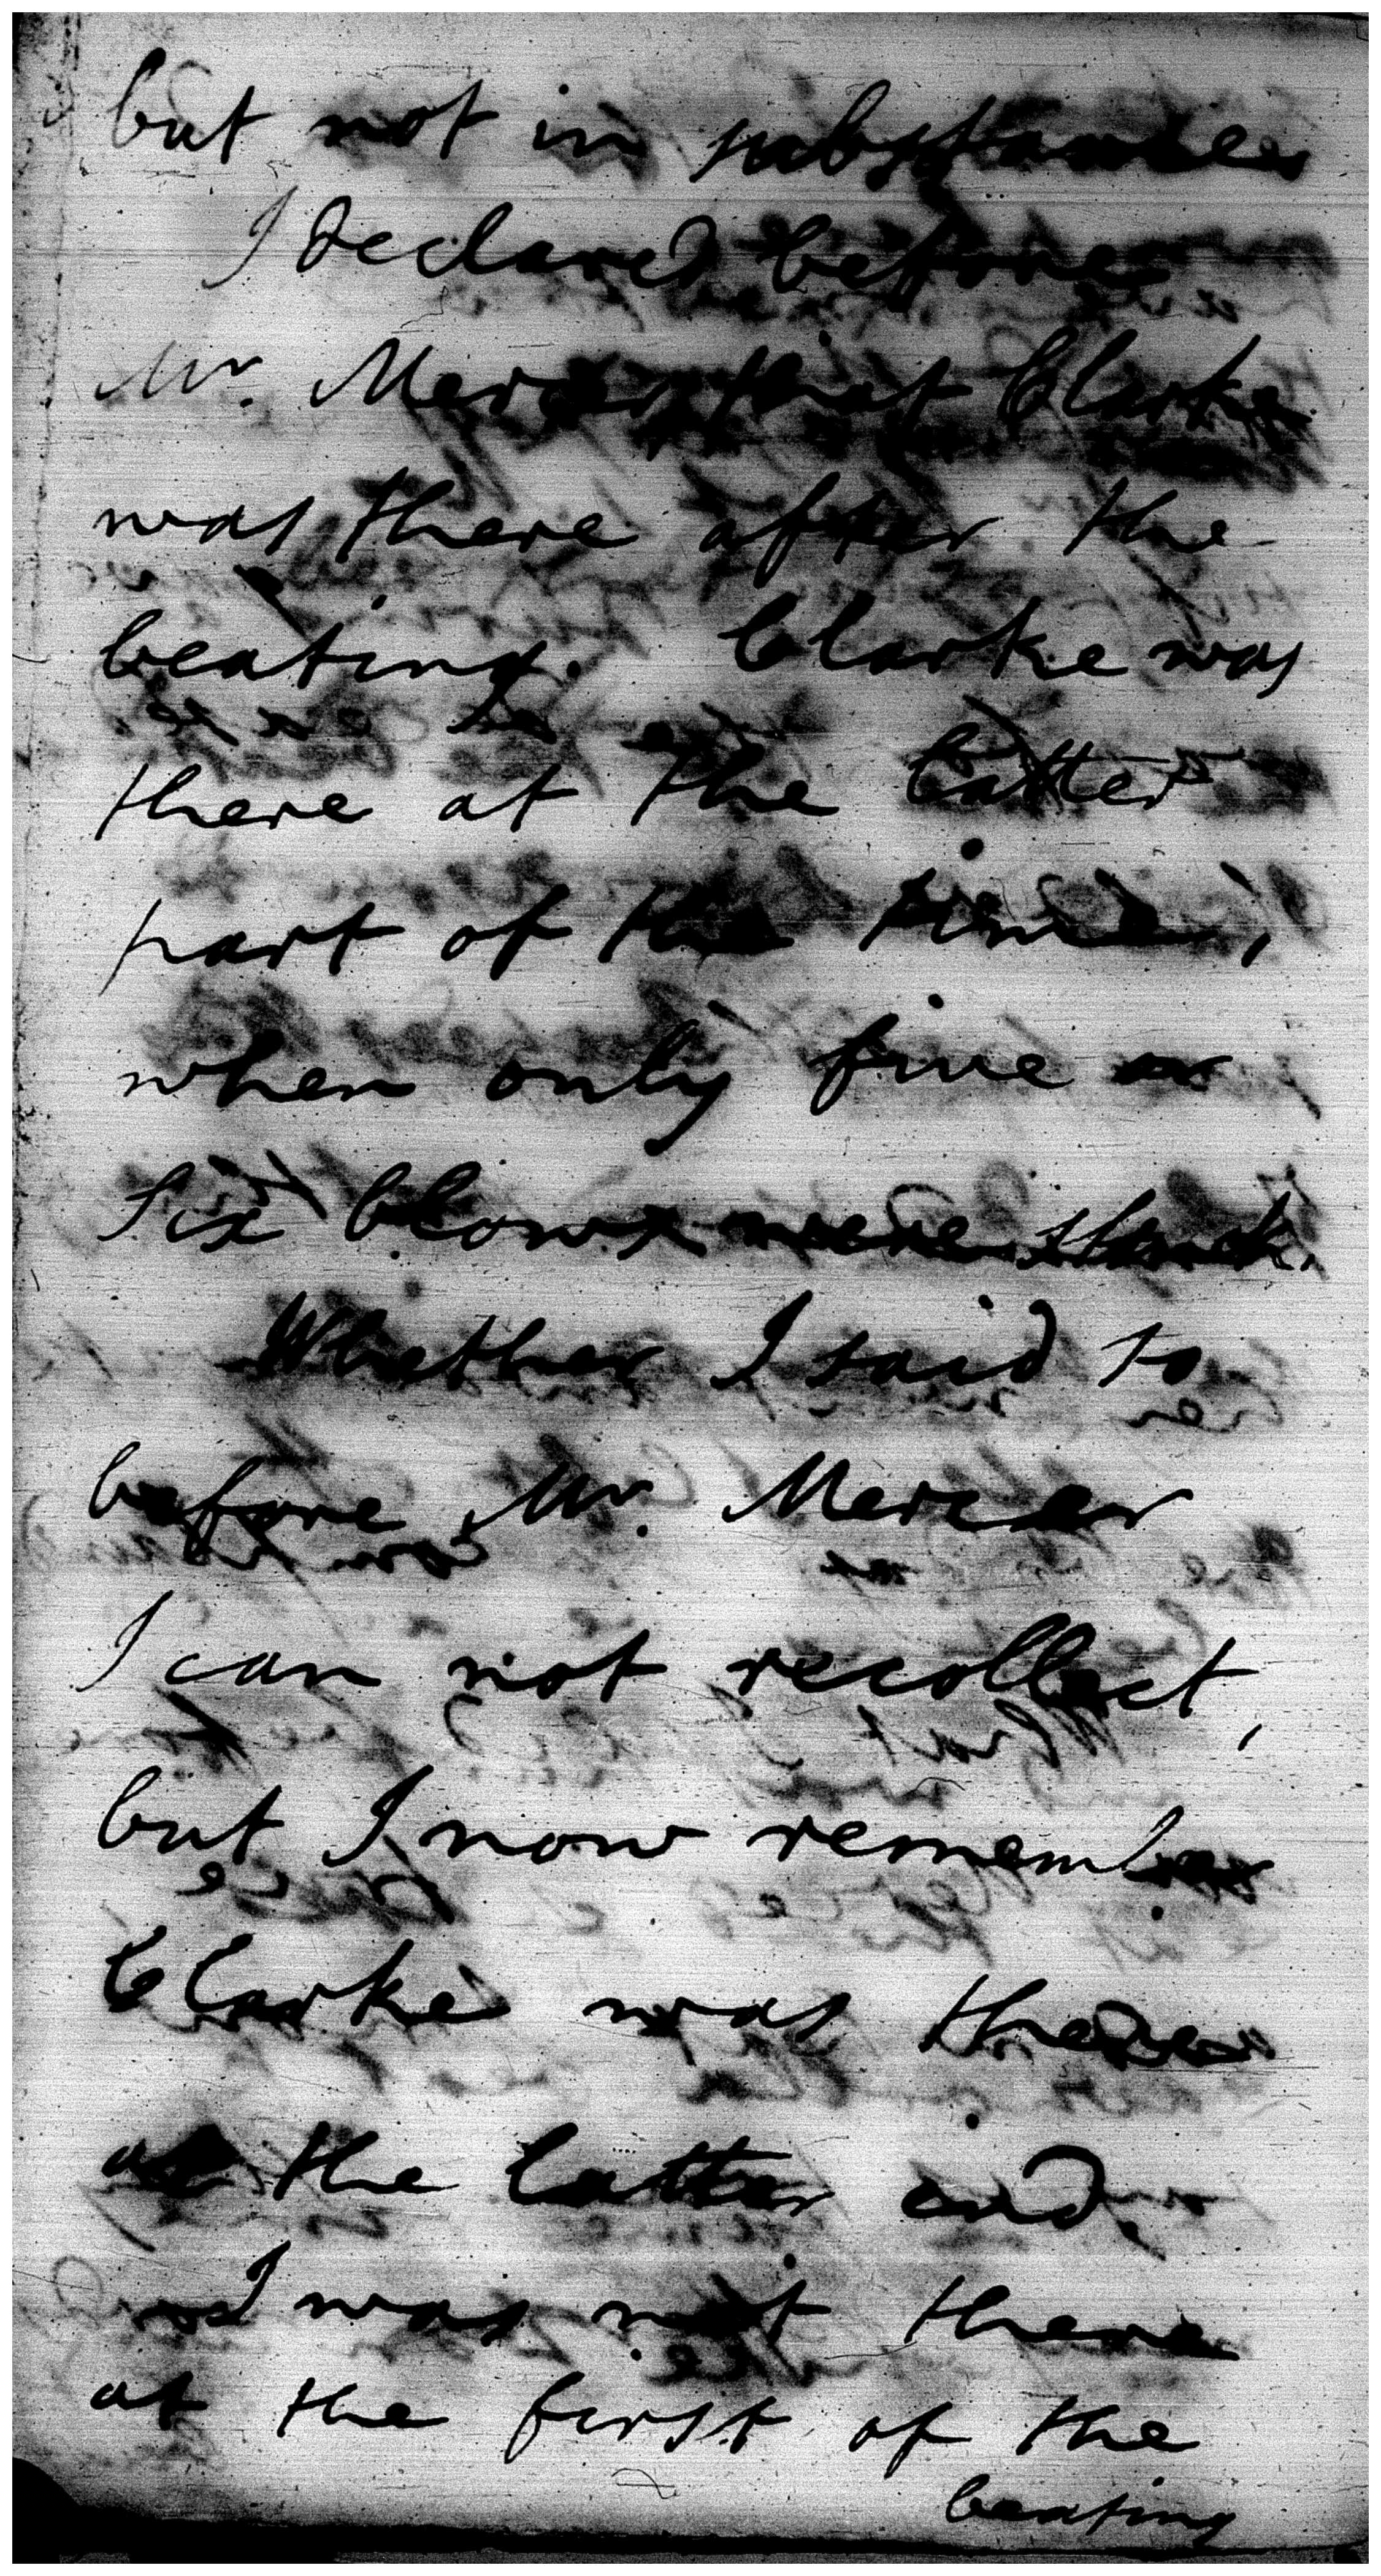 but not in substance
I declared before
Mr. Mercer that Clarke
was there after the
beating. Clarke was
there at the latter
part of the time,
when only five or
six blows were struck.
Whether I said so
before Mr. Mercer
I can not recollect,
but I now remember
Clarke was there
at the latter and
I was not there
at the first of the
beating